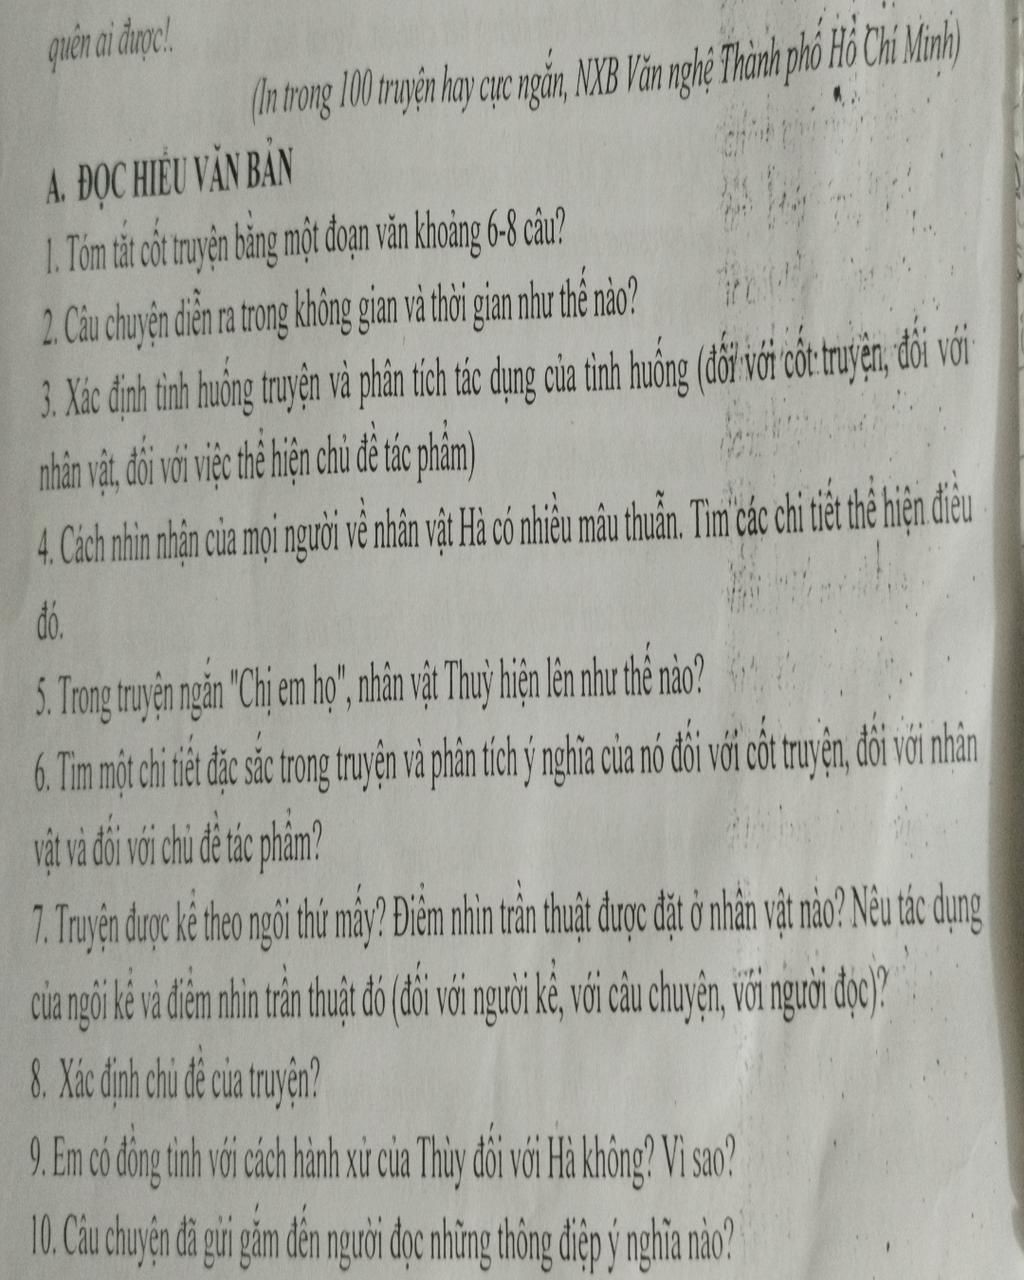 quên ai được!.
(In trong 100 truyện hay cực ngắn, NXB Văn nghệ Thành phố Hồ Chí Minh)
A. ĐỌC HIỂU VĂN BẢN
1. Tóm tắt cốt truyện bằng một đoạn văn khoảng 6-8 câu?
2. Câu chuyện diễn ra trong không gian và thời gian như thế nào?
3. Xác định tình huống truyện và phân tích tác dụng của tình huống (đối với cốt truyện, đối với
nhân vật, đối với việc thể hiện chủ đề tác phẩm)
4. Cách nhìn nhận của mọi người về nhân vật Hà có nhiều mâu thuẫn. Tìm các chi tiết thể hiện điều
đó.
5. Trong truyện ngắn "Chị em họ", nhân vật Thuỳ hiện lên như thế nào?
6. Tìm một chi tiết đặc sắc trong truyện và phân tích ý nghĩa của nó đối với cốt truyện, đối với nhân
vật và đối với chủ đề tác phẩm?
7. Truyện được kể theo ngôi thứ mấy? Điểm nhìn trần thuật được đặt ở nhân vật nào? Nêu tác dụng
của ngôi kể và điểm nhìn trần thuật đó (đối với người kể, với câu chuyện, với người đọc)?
8. Xác định chủ đề của truyện?
9. Em có đồng tình với cách hành xử của Thùy đối với Hà không? Vì sao?
10. Câu chuyện đã gửi gắm đến người đọc những thông điệp ý nghĩa nào?